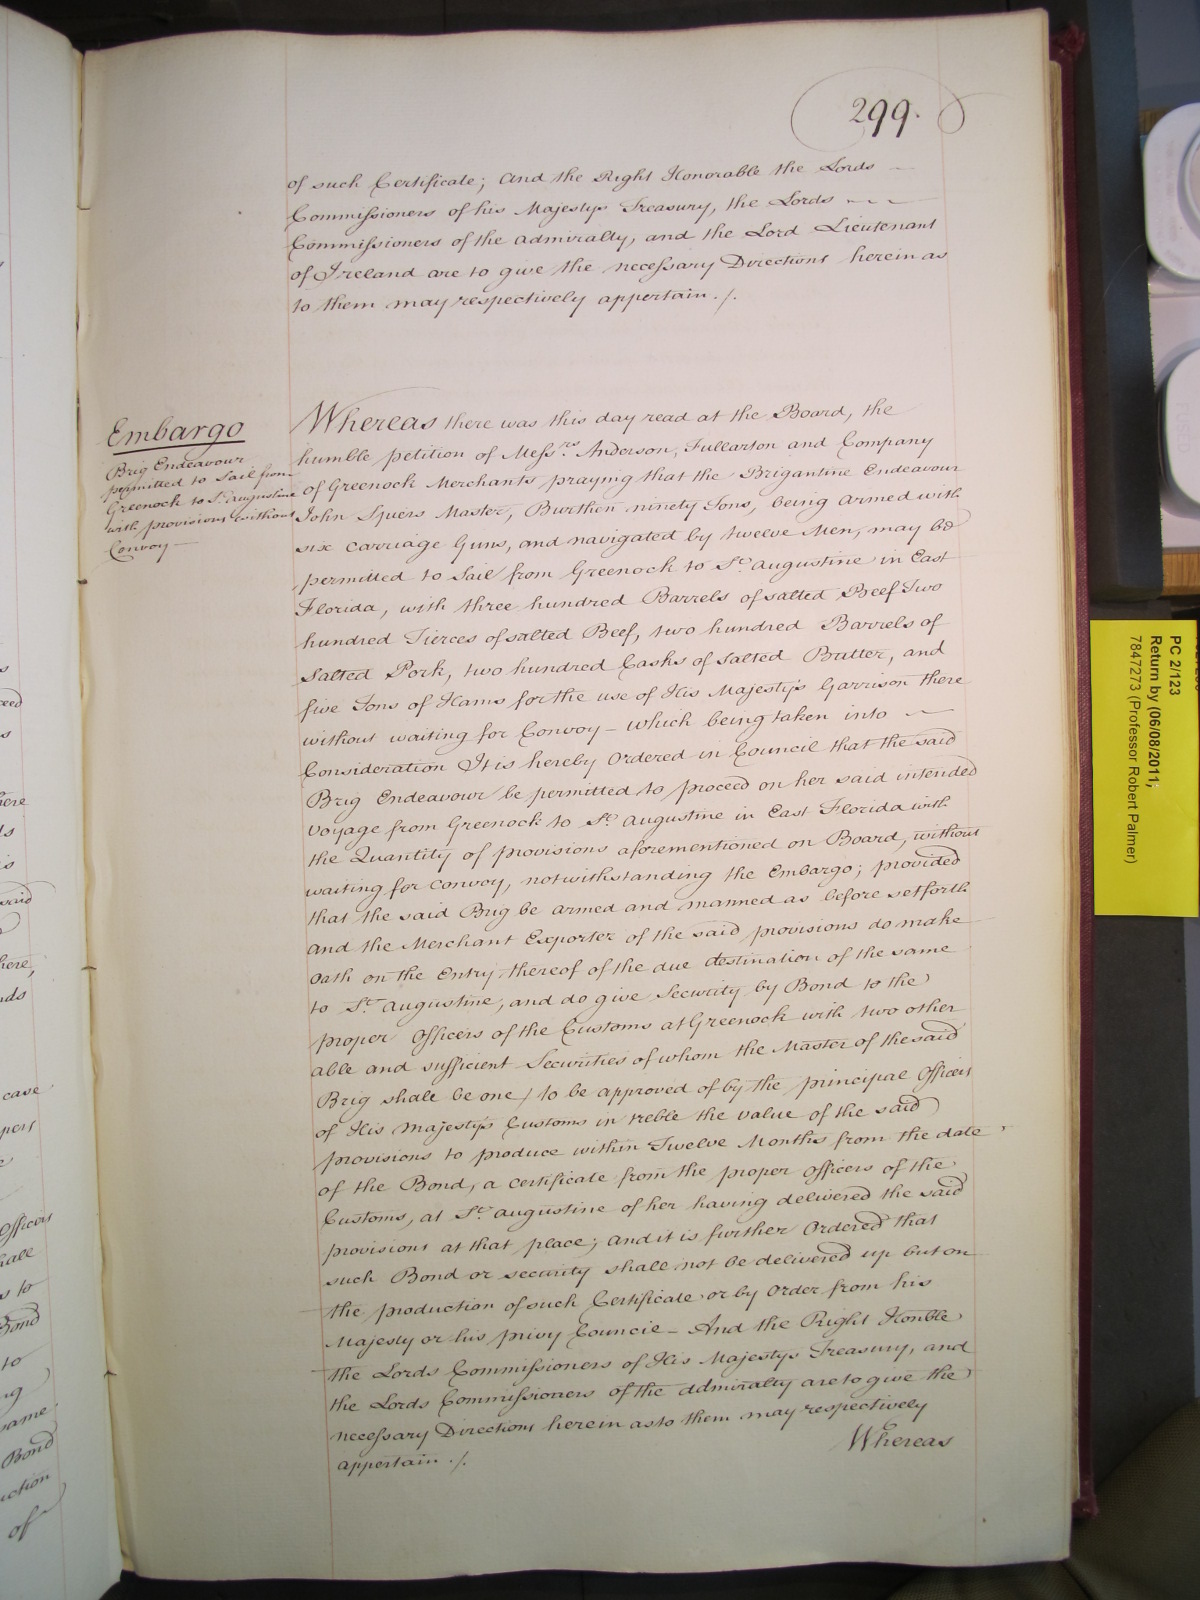 299.
of such Certificate; and the Right Honorable the Lords
Commissioners of his Majestys Treasury, the Lords
Commissioners of the admiralty, and the Lord Lieutenant
of Ireland are to give the necessary Directions herein as
to them may respectively appertain ./.
Embargo
Brig Endeavour
permitted to Sail from
Greenock to St. Augustine
with provisions without
Convoy
Whereas there was this day read at the Board, the
humble petition of Messrs. Anderson, Fullarton and Company
of Greenock Merchants praying that the Brigantine Endeavour
John Spers Master, Burthen ninety Tons, being armed with
six carriage Guns, and navigated by twelve Men, may be
permitted to Sail from Greenock to St. Augustine in East
Florida, with three hundred Barrels of salted Beef Two
hundred Tierces of salted Beef, two hundred Barrels of
Salted Pork, two hundred Casks of Salted Butter, and
five Tons of Hams for the use of His Majesty's Garrison there
without waiting for Convoy – which being taken into
Consideration It is hereby Ordered in Council that the said
Brig Endeavour be permitted to proceed on her said intended
Voyage from Greenock to St. Augustine in East Florida with
the Quantity of provisions aforementioned on Board, without
waiting for convoy, notwithstanding the Embargo; provided
that the said Brig be armed and manned as before setforth
and the Merchant Exporter of the said provisions do make
Oath on the Entry thereof of the due destination of the same
to St. Augustine, and do give Security by Bond to the
proper Officers of the Customs at Greenock with two other
able and sufficient Securities of whom the Master of the said
Brig shall be one / to be approved of by the principal Officers
of His Majesty's Customs in treble the value of the said
provisions to produce within Twelve Months from the date
of the Bond, a certificate from the proper officers of the
Customs, at St. Augustine of her having delivered the said
provisions at that place; and it is further Ordered that
such Bond or security shall not be delivered up but on
the production of such Certificate or by Order from his
Majesty or his privy Council – And the Right Honble
the Lords Commissioners of His Majesty's Treasury, and
the Lords Commissioners of the admiralty are to give the
necessary Directions herein as to them may respectively
appertain ./.
Whereas
PC 2/123
Return by (06/08/2011;
7847273 (Professor Robert Palmer)
said
case
Officers
hall
s to
Bond
to
same
Bond
of